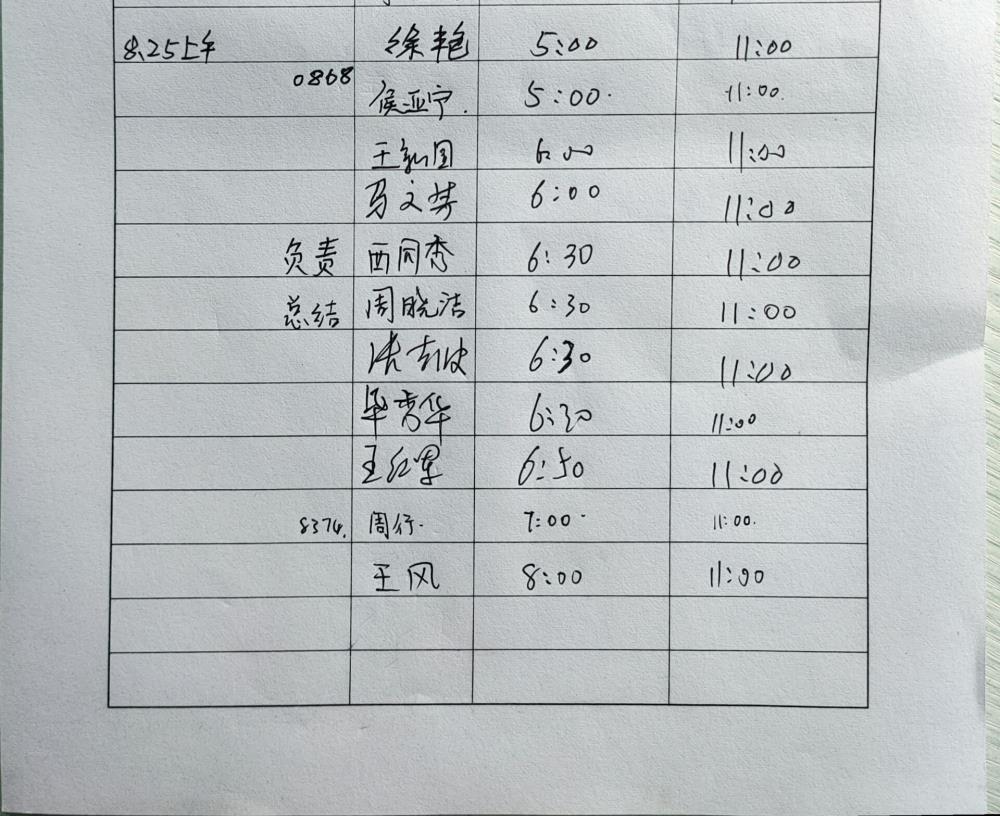 8.25上午 徐艳 5:00 11:00
0868 侯亚宁. 5:00. 11:00.
王 国 6:00 11:00
马文 6:00 11:00
负责 西同秀 6:30 11:00
总结 周晓洁 6:30 11:00
6:30 11:00
毕秀华 6:30 11:00
王红军 6:50 11:00
8374. 周行. 7:00. 11:00.
王风 8:00 11:00